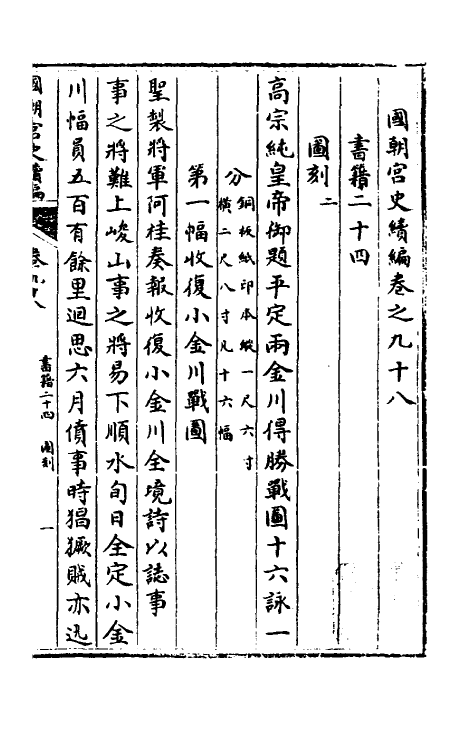 國朝宮史續編卷之九十八
書籍二十四
圖刻二
高宗純皇帝御題平定兩金川得勝戰圖十六詠一
分銅板紙印本縱一尺六寸
橫二尺八寸凡十六幅
第一幅收復小金川戰圖
聖製將軍阿桂奏報收復小金川全境詩以誌事
事之將難上峻山事之將易下順水旬日全定小金
川幅員五百有餘里迴思六月僨事時猖獗賊亦迅
國朝宮史續編 卷九十八 書籍二十四 圖刻 一